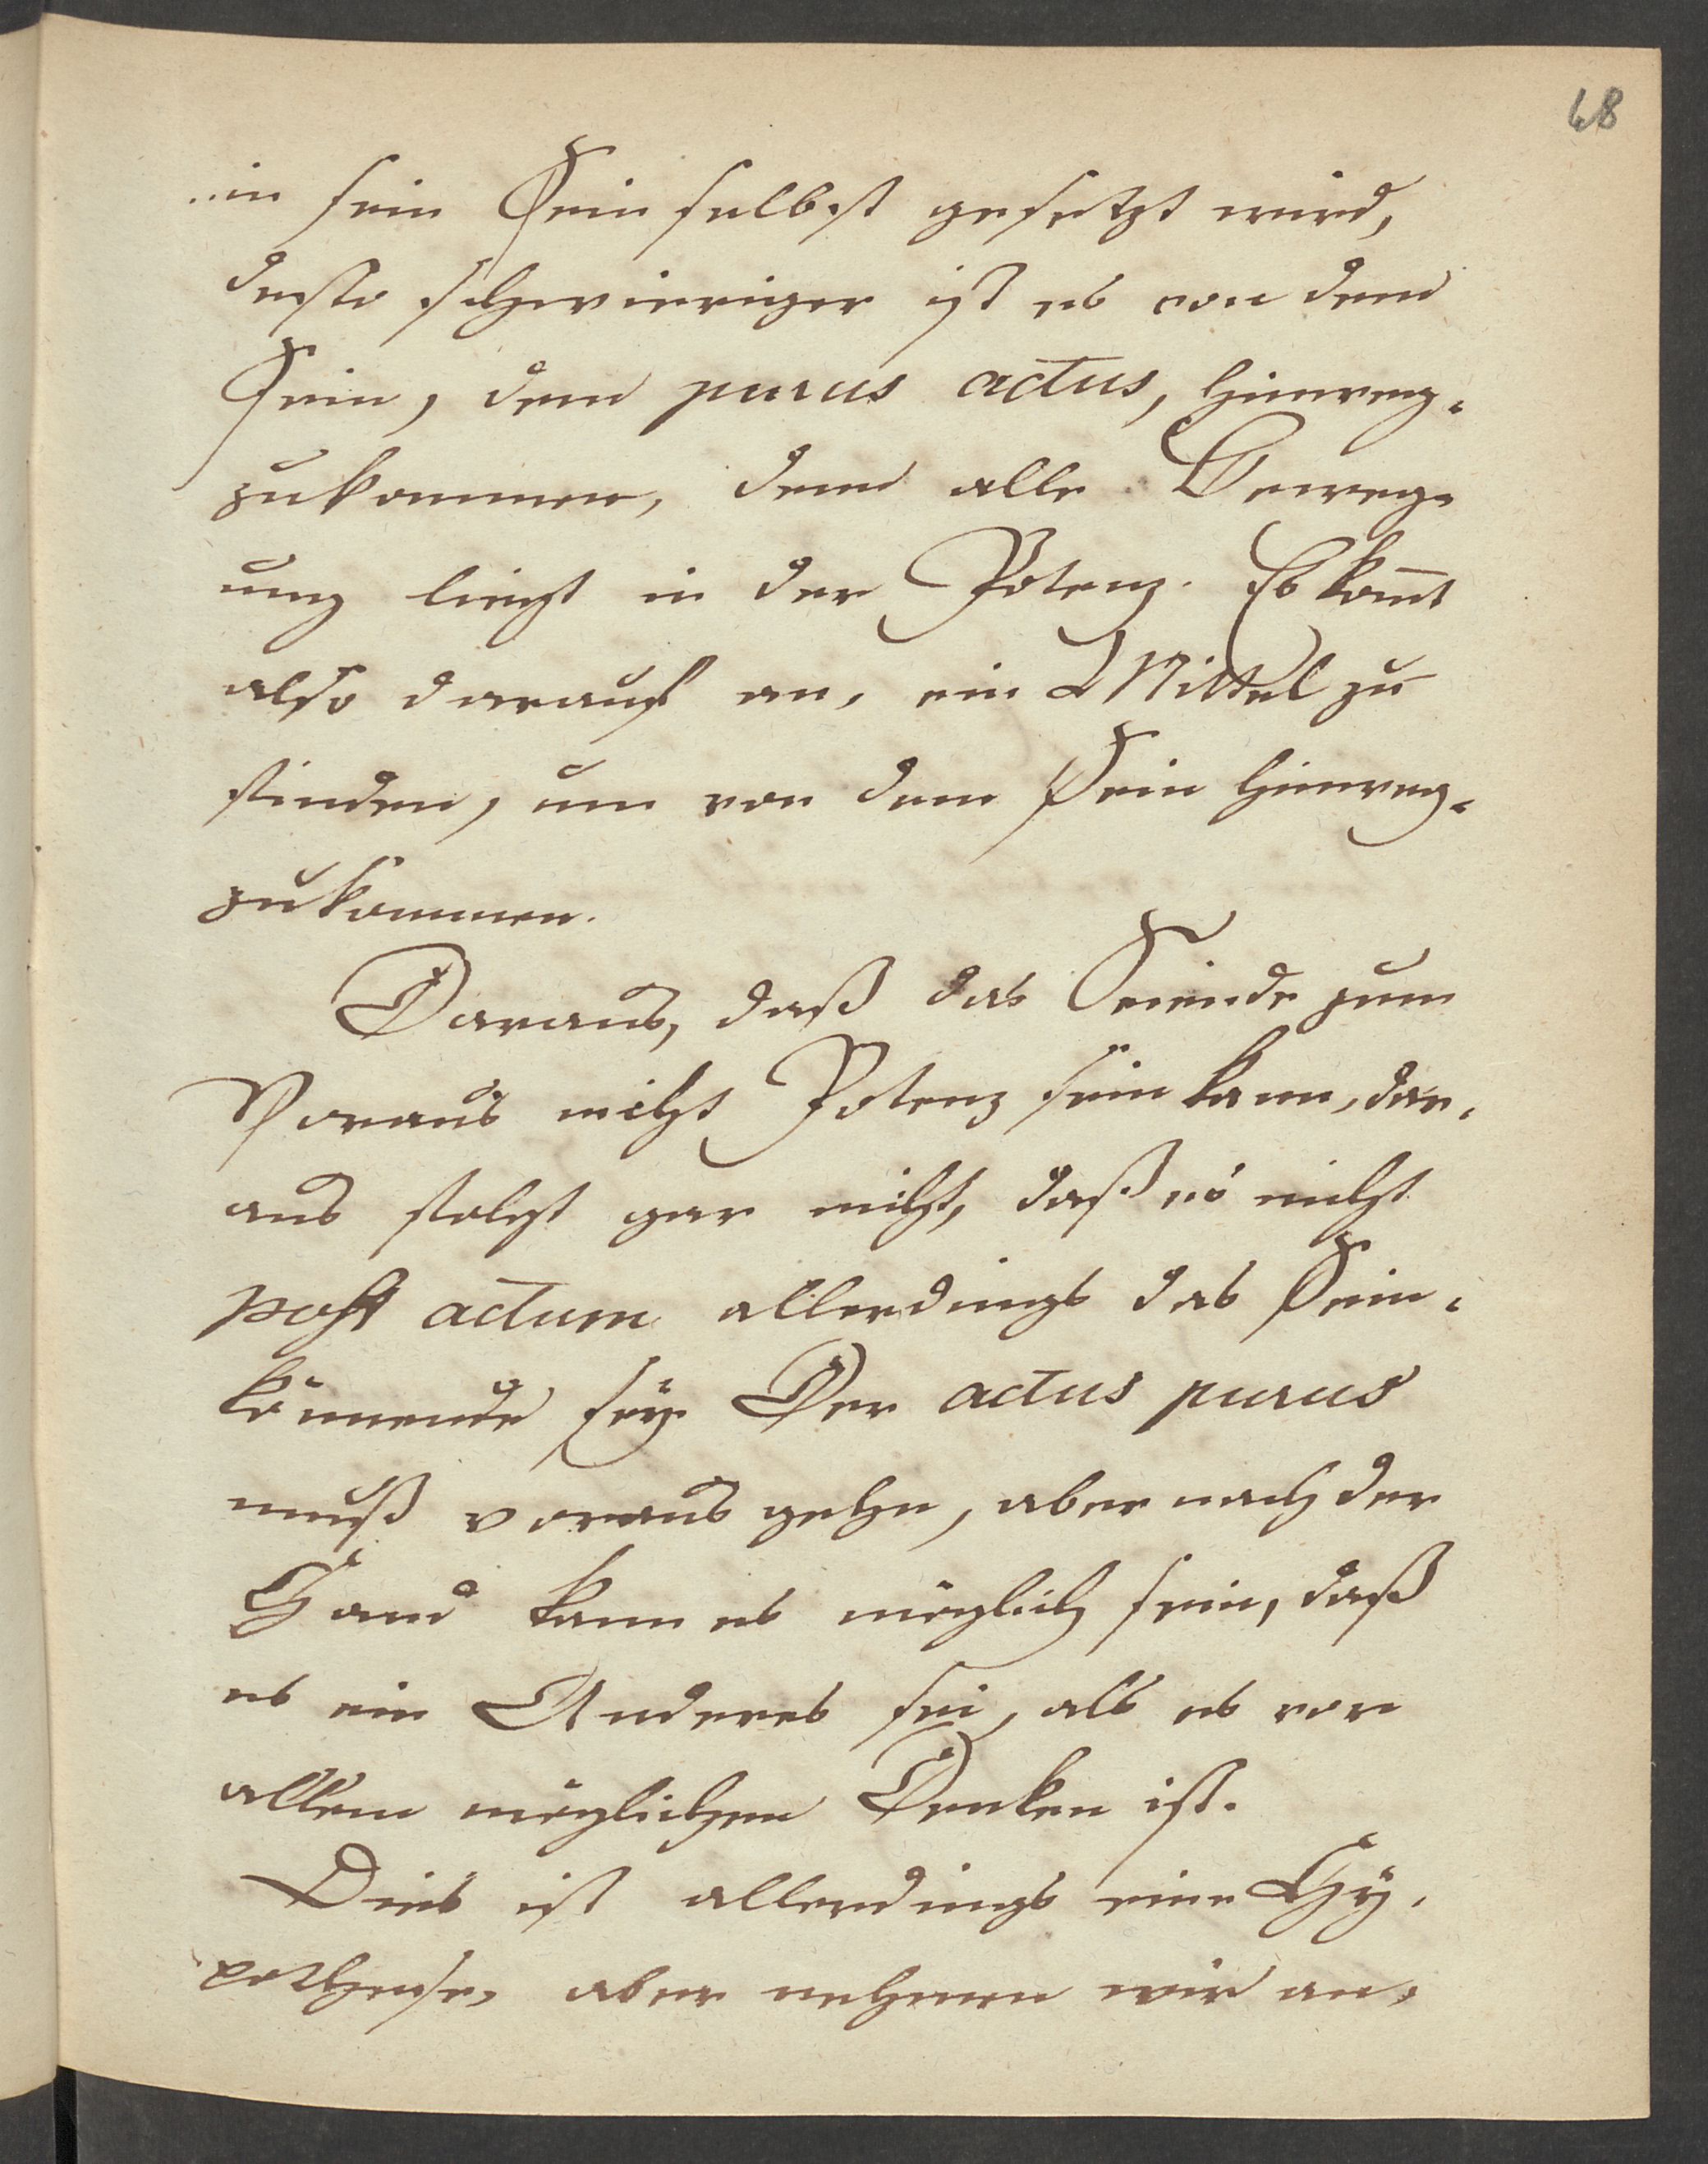 68
in sein Sein selbst gesetzt wird,
desto schwieriger ist es von dem
Sein, dem purus actus, hinweg-
zukommen, denn alle Beweg-
ung liegt in der Potenz. Es kom̅t
also darauf an, ein Mittel zu
finden, um von dem Sein hinweg-
zukommen.
Daraus, daß das Seiende zum
Voraus nicht Potenz sein kann, dar-
aus folgt gar nicht, daß es nicht
post actum allerdings das Sein-
könnende sey. Der actus purus
muß voraus gehn, aber nach der
Hand kann es möglich sein, daß
es ein Anderes sei, als es vor
allem möglichen Denken ist.
Dies ist allerdings eine Hy-
pothese, aber nehmen wir an,